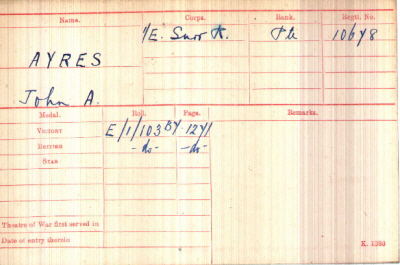 Name. Corps. Rank. Regtl. No.
AYRES E. Surr R. Pte 10678
John A.
Medal. Roll. Page. Remarks.
VICTORY E/1/103 B7 1271
BRITISH -do- -do-
STAR
Theatre of War first served in
Date of entry therein
K. 1380